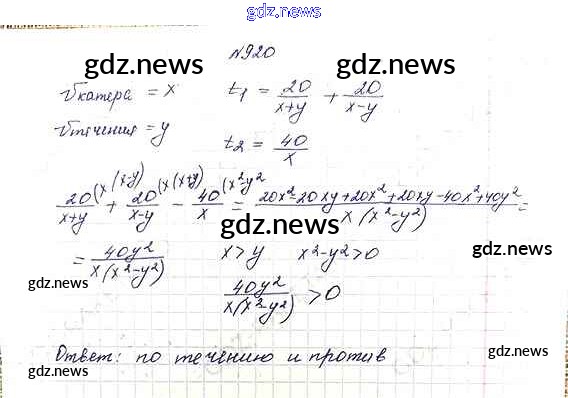 gdz.news
N920
gdz.news gdz.news
Vкатера = x t₁ = 20/(x+y) + 20/(x-y)
Vтечения = y t₂ = 40/x
gdz.news gdz.news
20/(x+y) (x(x-y) + 20/(x-y) (x(x+y) - 40/x (x²y² = (20x²-20xy+20x²+20xy-40x²+40y²)/(x(x²-y²)) =
gdz.news gdz.news
= 40y²/(x(x²-y²)) x>y x²-y²>0
gdz.news
40y²/(x(x²-y²)) > 0
gdz.news
Ответ: по течению и против
gdz.news
gdz.news